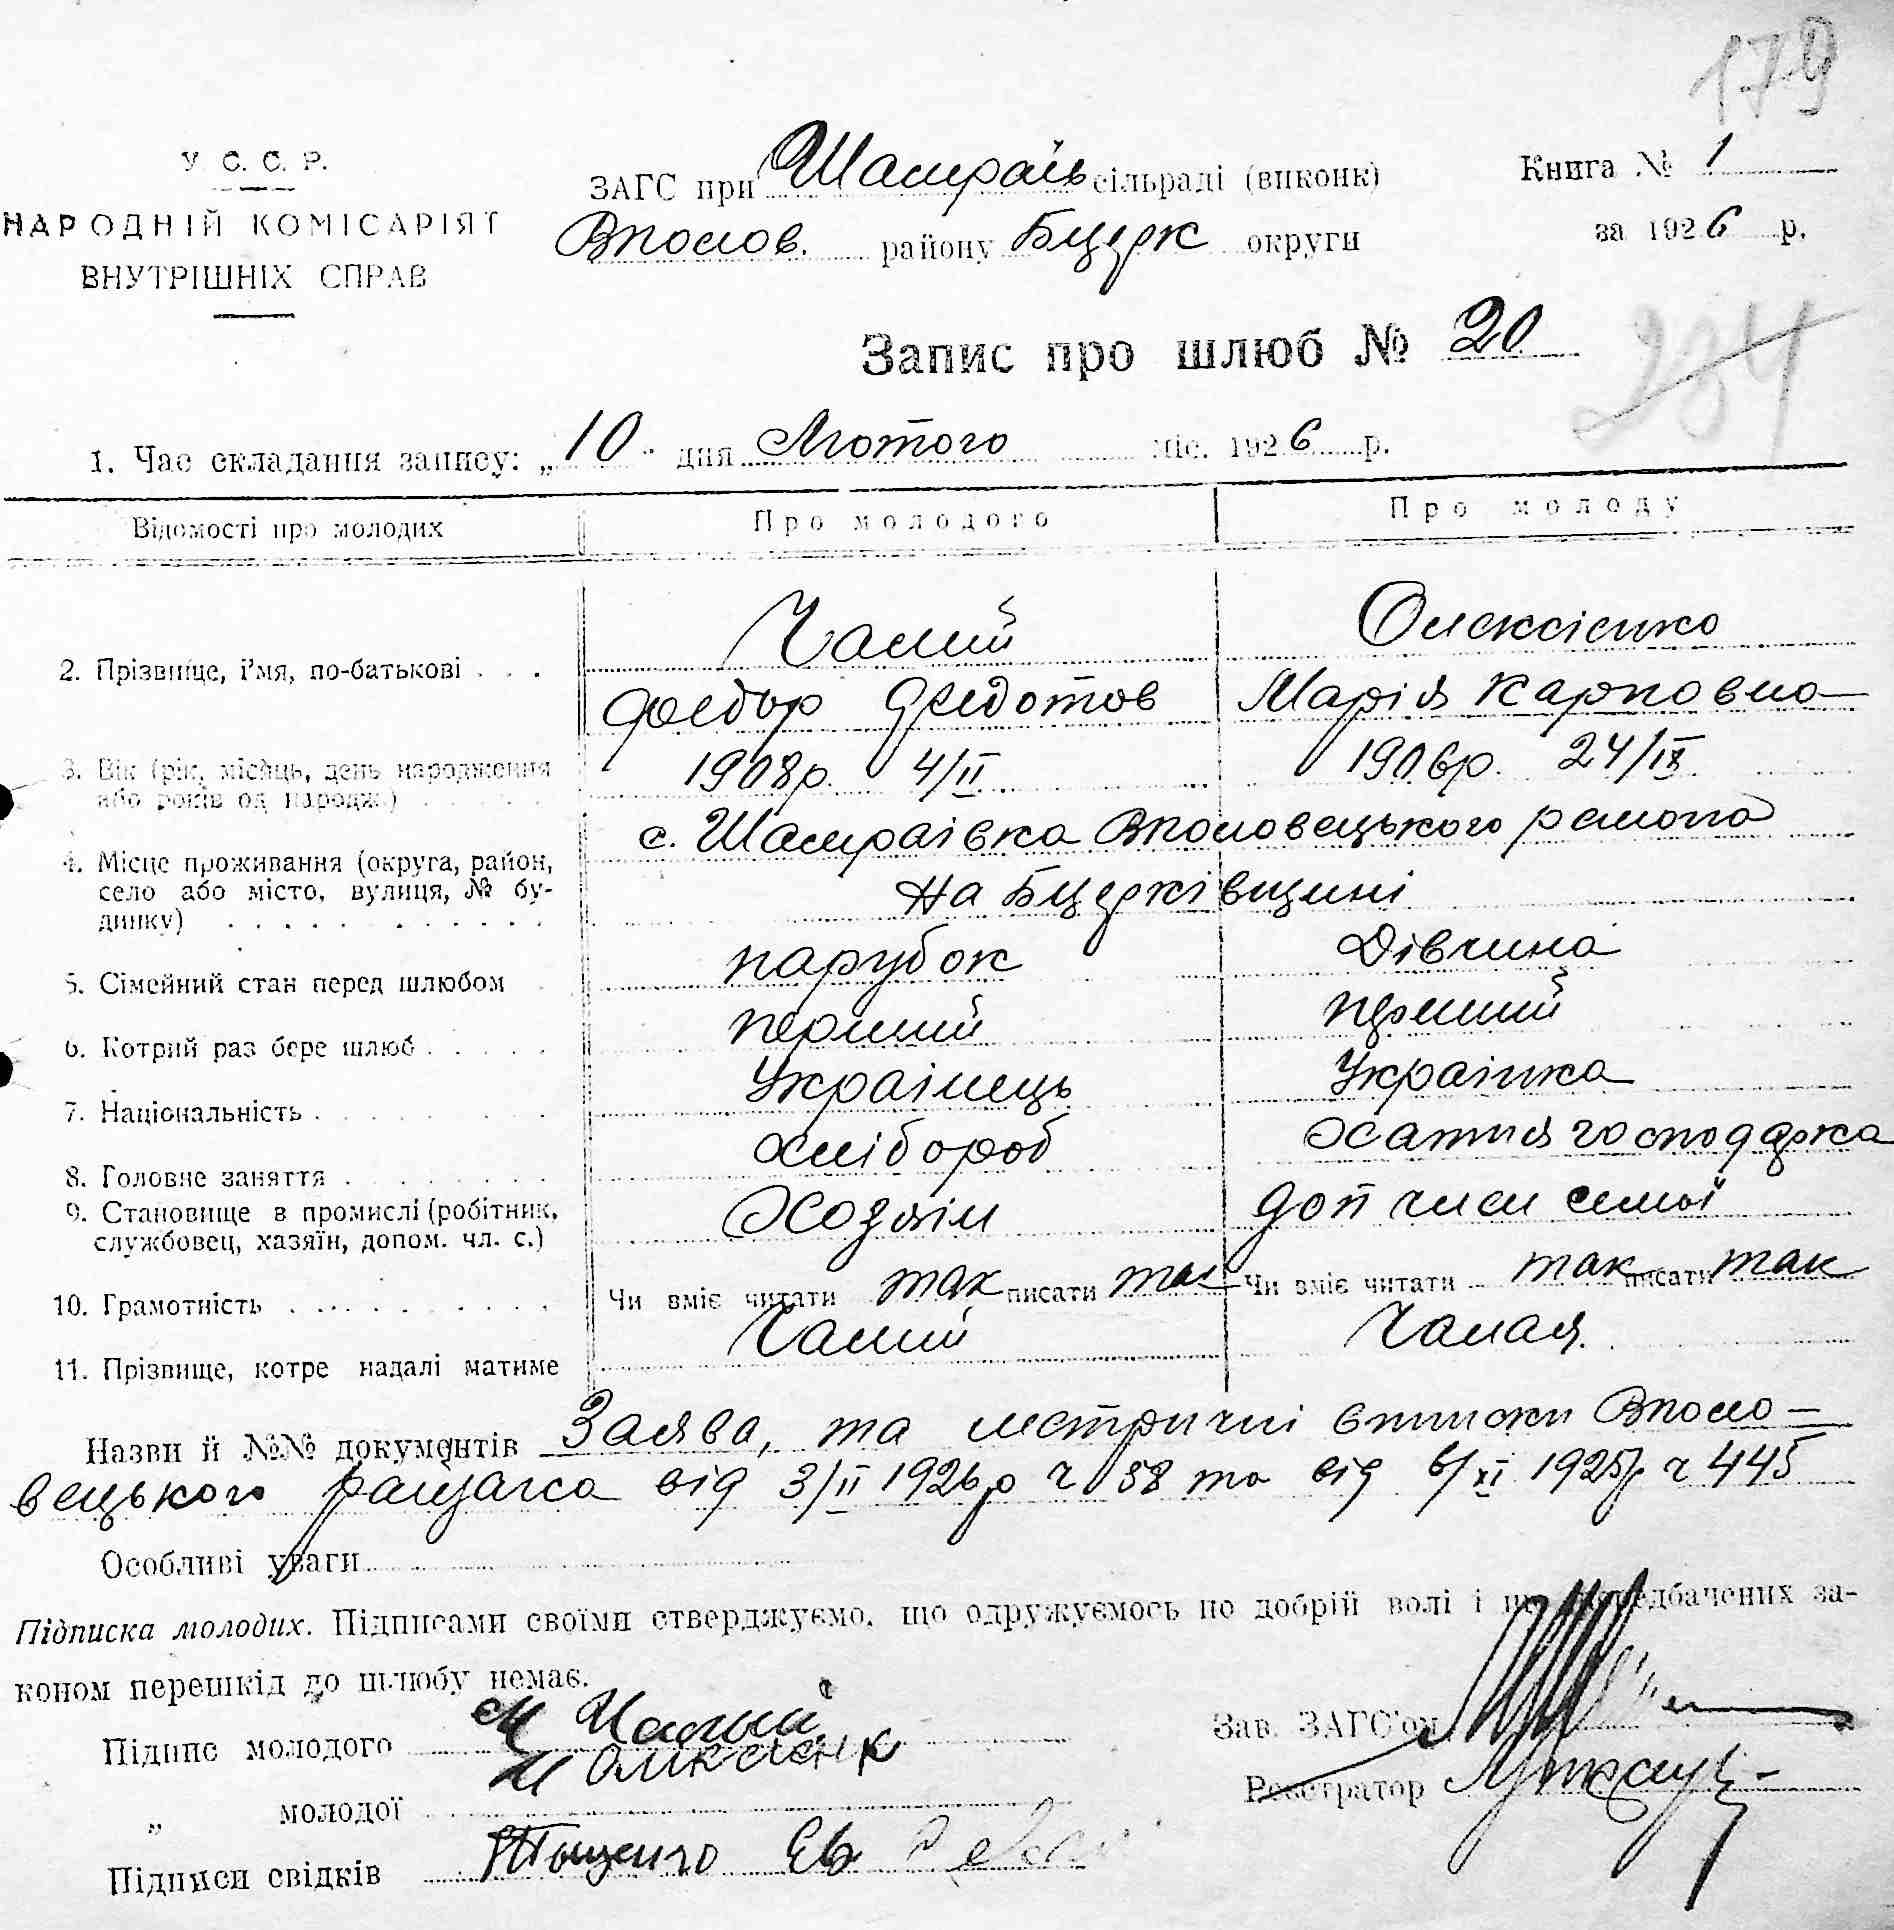 179
У. С. С. Р.
НАРОДНІЙ КОМІСАРІЯТ
ВНУТРІШНІХ СПРАВ
ЗАГС при Шамраїв сільраді (виконк)
Вполов. району Бцерк округи
Книга № 1
за 1926 р.
Запис про шлюб № 20
234
1. Час складання запису: „10" дня Лютого міс. 1926 р.
Відомості про молодих Про молодого Про молоду
2. Прізвище, і'мя, по-батькові . . . Чалий Олексієнко
Федор Федотов Марія Карповна
3. Вік (рік, місяць, день народження або років од народж.) 1908р. 4/II 1906р. 24/IX
4. Місце проживання (округа, район, село або місто, вулиця, № будинку) с. Шамраівка Вполовецького району
на Бцерківщині
5. Сімейний стан перед шлюбом парубок Дівчина
6. Котрий раз бере шлюб перший перший
7. Національність Українець Українка
8. Головне заняття хлібороб хатня господарка
9. Становище в промислі (робітник, службовец, хазяїн, допом. чл. с.) Хозяін доп член семьї
10. Грамотність Чи вміє читати так писати так Чи вміє читати так писати так
11. Прізвище, котре надалі матиме Чалий Чалая.
Назви й №№ документів Заява, та метричні виписки Вполо-
вецького райзагса від 3/II 1926р ч 58 та від 6/XI 1925р ч 445
Особливі уваги
Підписка молодих. Підписами своїми стверджуємо, що одружуємось по добрій волі і що передбачених за-
коном перешкід до шлюбу немає.
Підпис молодого Чалий
„ молодої М Олексієнк
Підписи свідків
Зав. ЗАГС'ом
Реєстратор